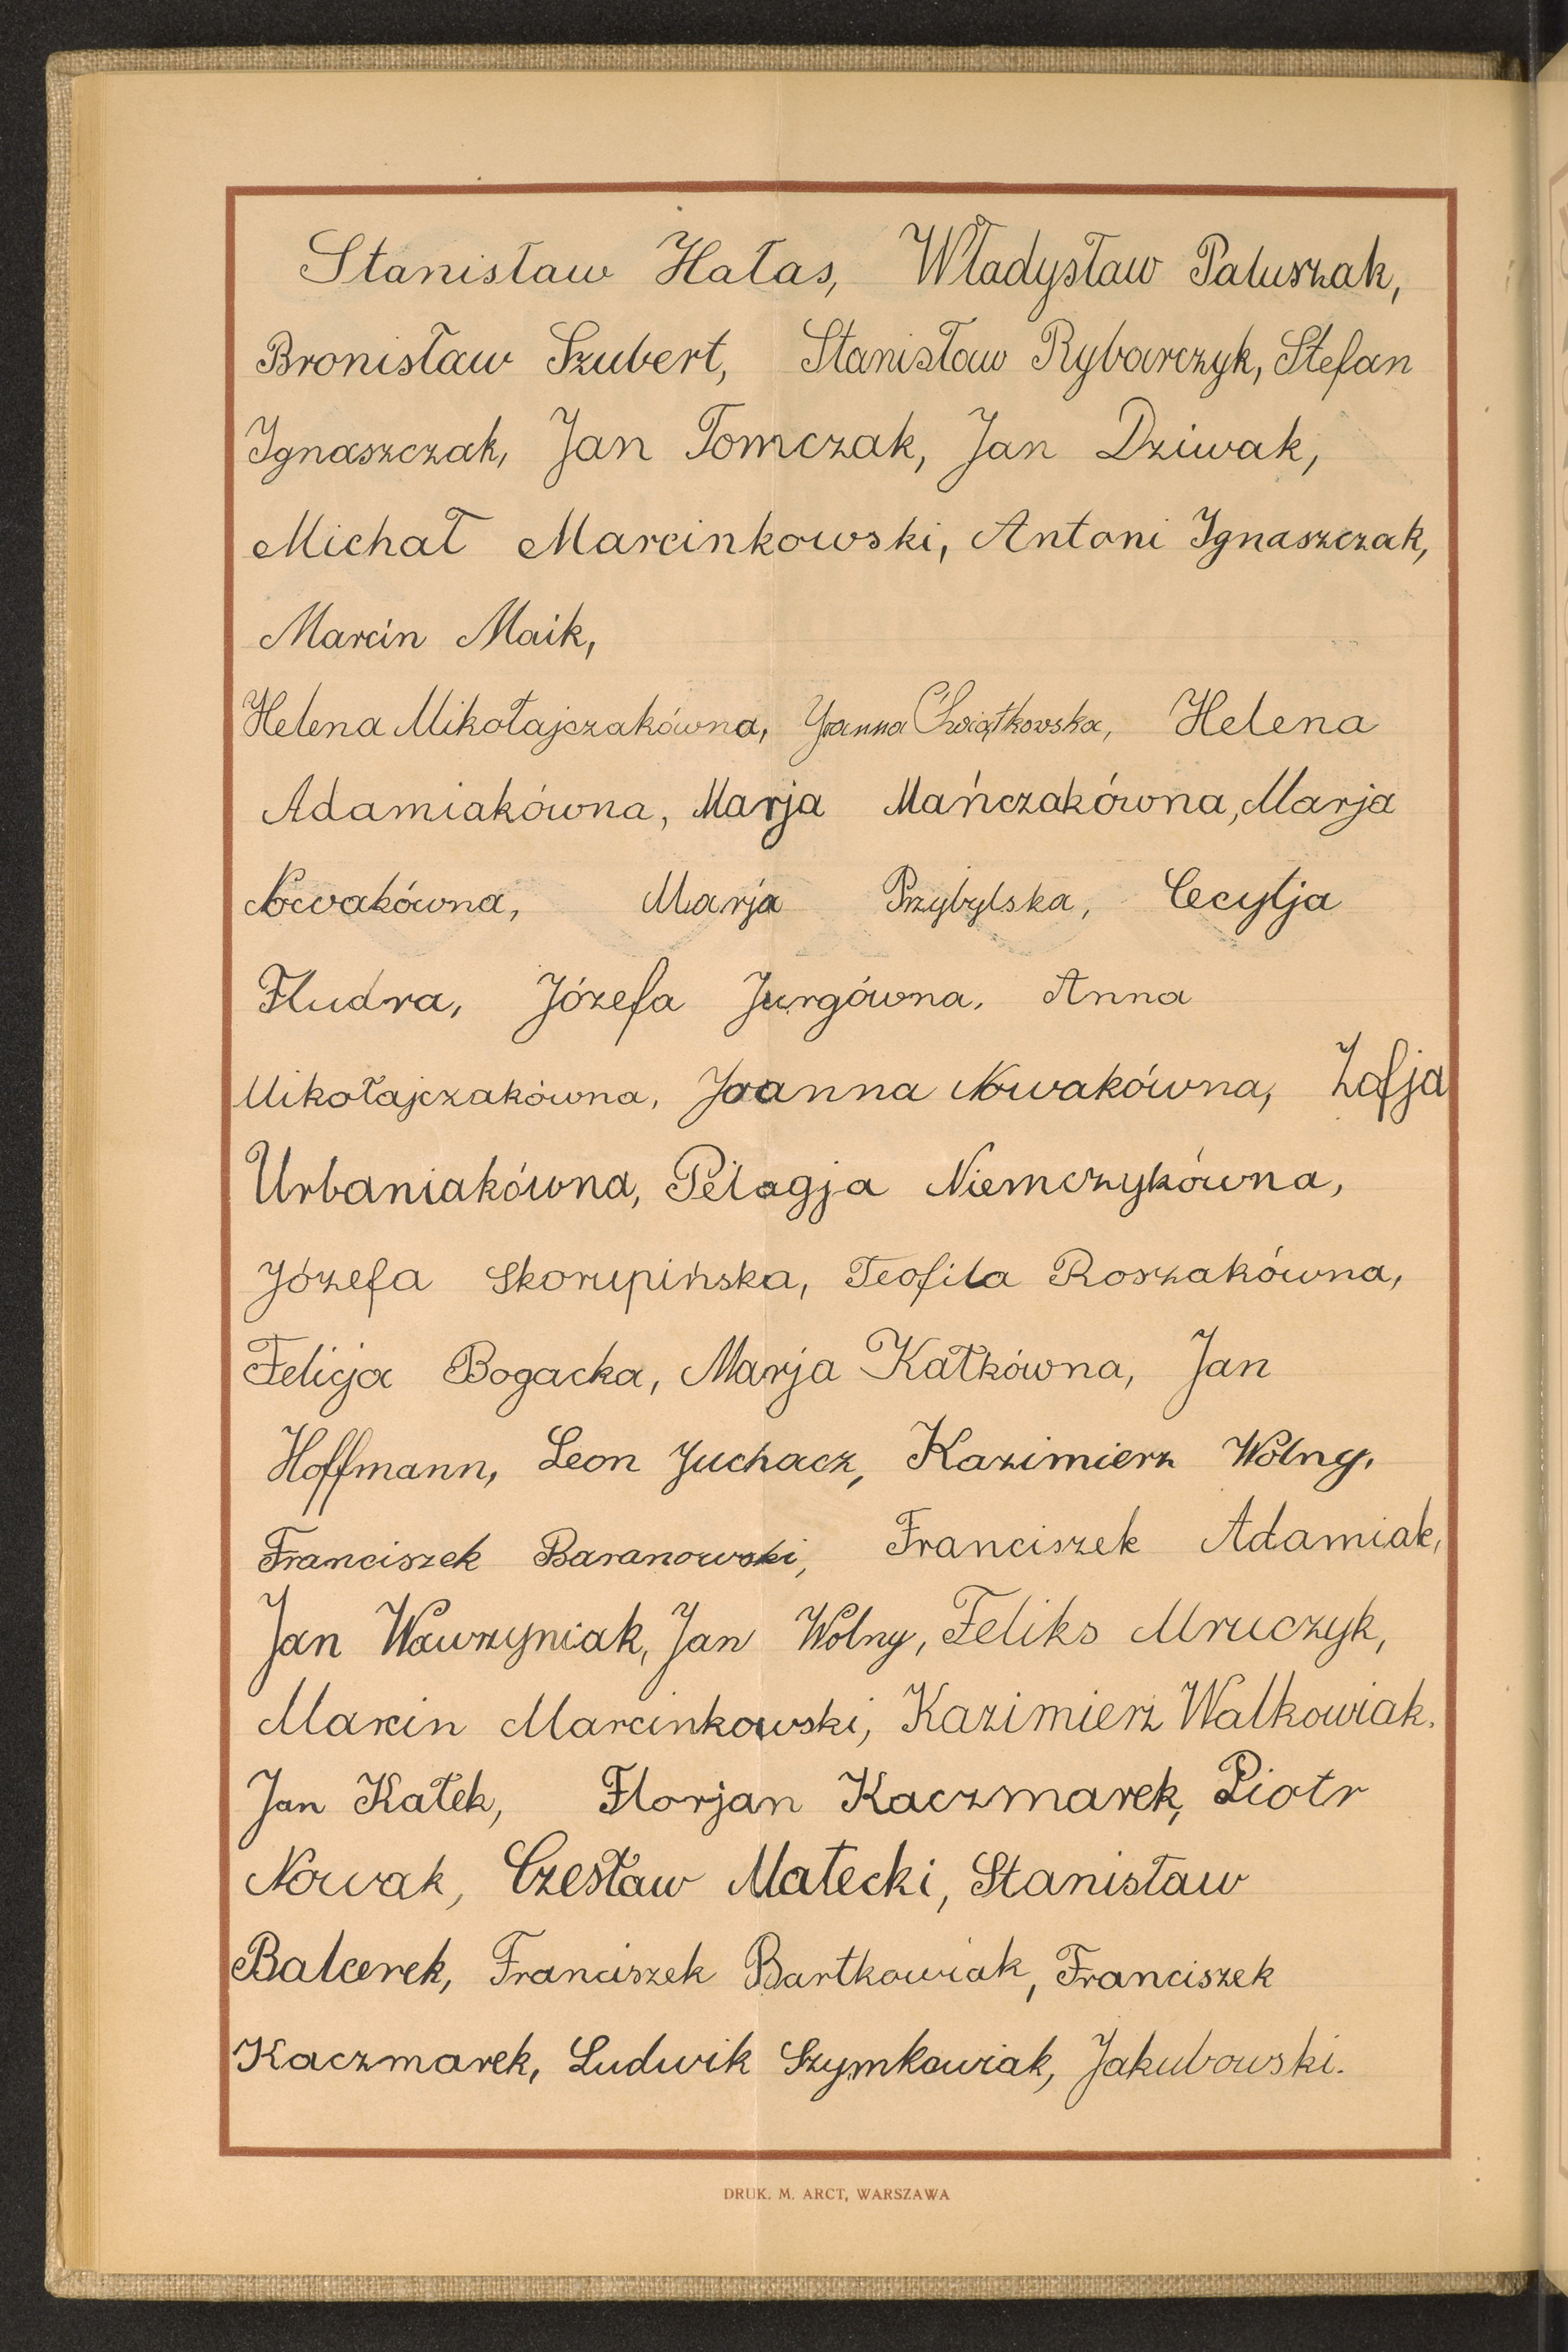 Stanisław Hałas, Władysław Paluszak,
Bronisław Szubert, Stanisław Rybarczyk, Stefan
Ignaszczak, Jan Tomczak, Jan Dziwak,
Michał Marcinkowski, Antoni Ignaszczak,
Marcin Maik,
Helena Mikołajczakówna, Joanna Chwiątkowska, Helena
Adamiakówna, Marja Mańczakówna, Marja
Nowakówna, Marja Przybylska, Cecylja
Fludra, Józefa Jurgówna, Anna
Mikołajczakówna, Joanna Nowakówna, Zofja
Urbaniakówna, Pelagja Niemczykówna,
Józefa Skorupińska, Teofila Roszakówna,
Felicja Bogacka, Marja Kałkówna, Jan
Hoffmann, Leon Juchacz, Kazimierz Wolny,
Franciszek Baranowski, Franciszek Adamiak,
Jan Wawrzyniak, Jan Wolny, Feliks Mruczyk,
Marcin Marcinkowski, Kazimierz Walkowiak.
Jan Kałek, Florjan Kaczmarek, Piotr
Nowak, Czesław Małecki, Stanisław
Balcerek, Franciszek Bartkowiak, Franciszek
Kaczmarek, Ludwik Szymkowiak, Jakubowski.
DRUK. M. ARCT, WARSZAWA